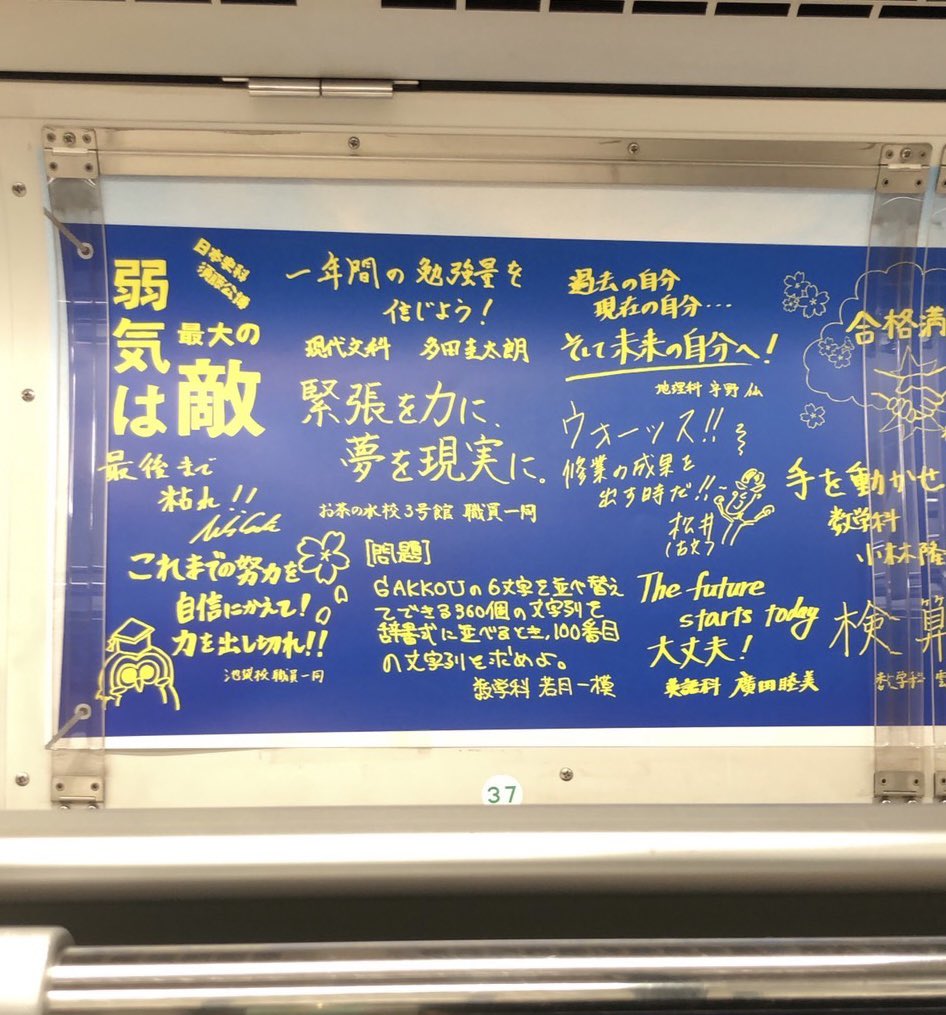 弱気は
最大の
敵
日本史科
最後まで
粘れ!!
これまでの努力を
自信にかえて!
力を出し切れ!!
池袋校 職員一同
一年間の勉強量を
信じよう!
現代文科 多田圭太朗
緊張を力に、
夢を現実に。
お茶の水校3号館 職員一同
[問題]
GAKKOUの6文字を並べ替え
てできる360個の文字列を
辞書式に並べるとき、100番目
の文字列を求めよ。
数学科 若月一模
過去の自分
現在の自分…
そして未来の自分へ!
地理科 宇野 仙
ウォーッス!!
修業の成果を
出す時だ!!
松井
(古文)
The future
starts today
大丈夫!
英語科 廣田睦美
合格満
手を動かせ
数学科
小林隆
検算
数学科
37